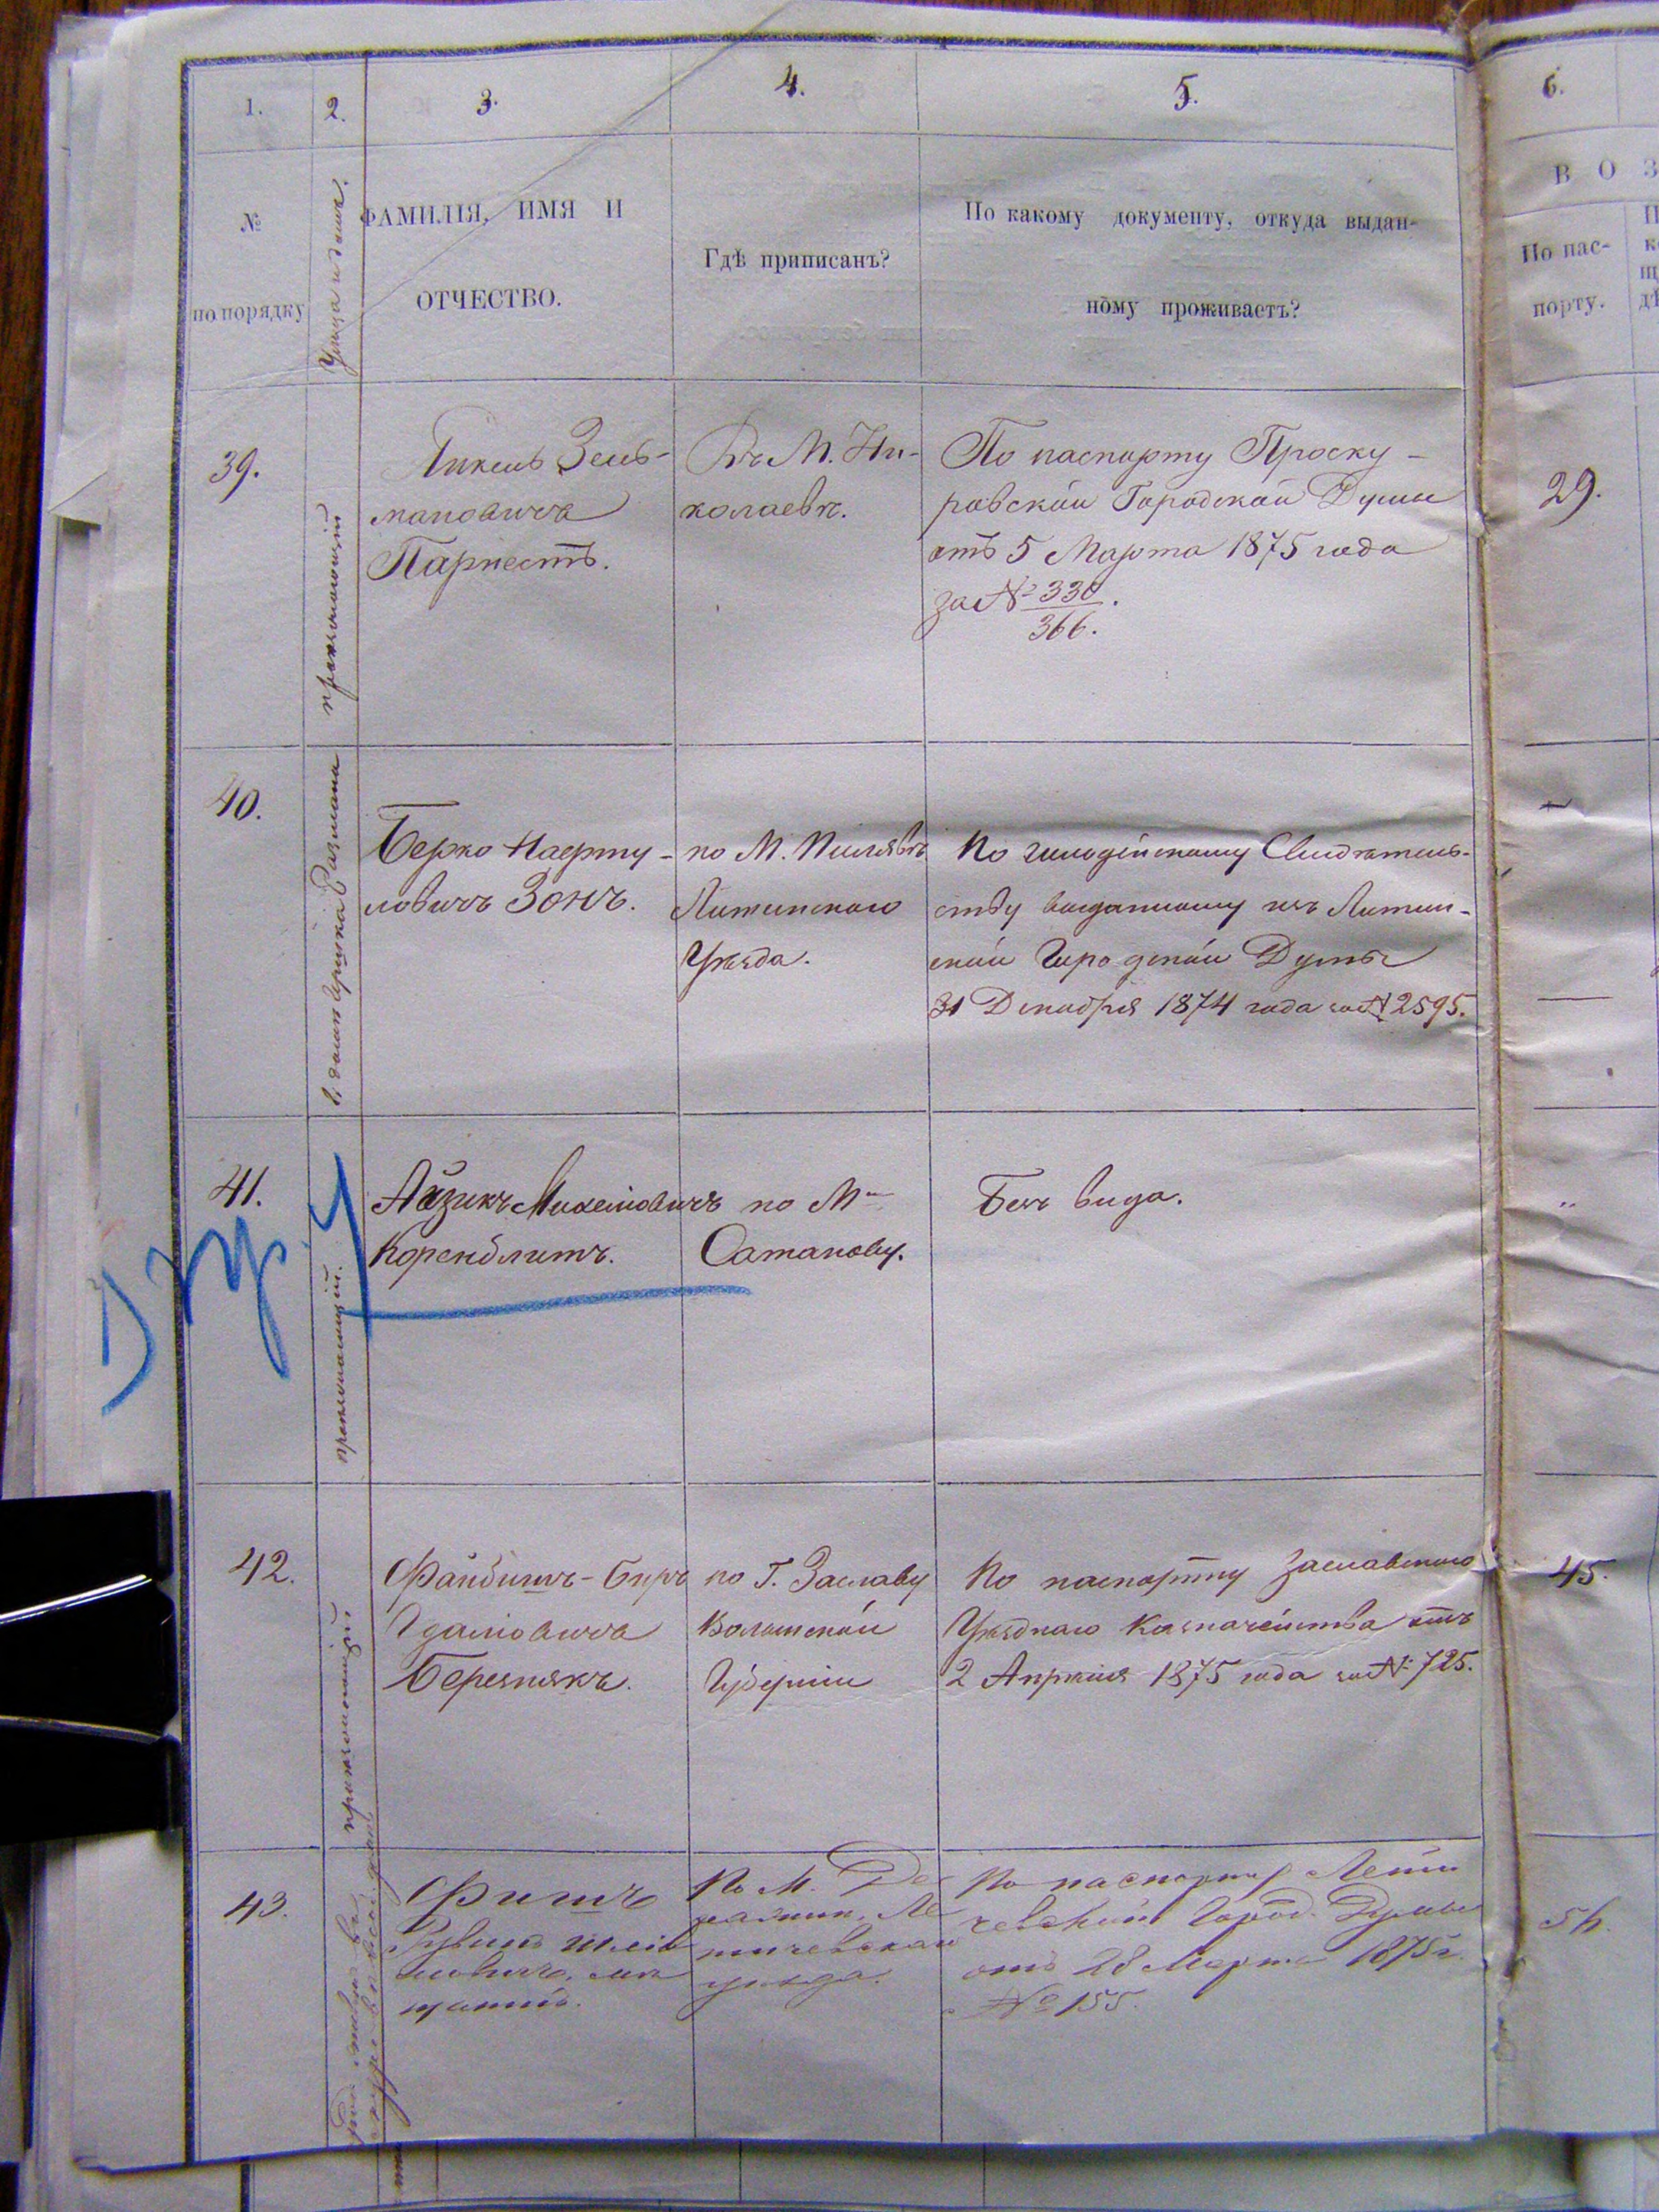 1.
2.
3.
4.
5.
6.
№
по порядку
Улица и домъ.
ФАМИЛІЯ, ИМЯ И
ОТЧЕСТВО.
Гдѣ приписанъ?
По какому документу, откуда выдан-
ному проживаетъ?
В О З
По пас-
порту.
39.
Зель-
мановича
Парнестъ.
Въ М. Ни-
колаевѣ.
По паспорту Проску-
ровской Городской Думы
отъ 5 Марта 1875 года
за № 330
366.
29.
40.
Берко
ловичъ Зонъ.
по М. Пилявѣ
Литинскаго
Уѣзда.
По Свидѣтель-
ству выданному изъ Литин-
ской Городской Думы
31 Декабря 1874 года за № 2595.
41.
Айзикъ Михелиовичъ
Коренблитъ.
по М.
Сатанову.
Безъ вида.
42.
Файбишъ-Беръ
Березнякъ.
по Г. Заславу
Волынской
Губерніи
По паспорту Заславскаго
Уѣзднаго Казначейства отъ
2 Апрѣля 1875 года за № 725.
45.
43.
Фишъ
По М. Де
ражни, Ле
тичевскаго
уѣзда.
По паспорту Лети
чевской Город. Думы
отъ 28 Марта 1875 г.
№ 155.